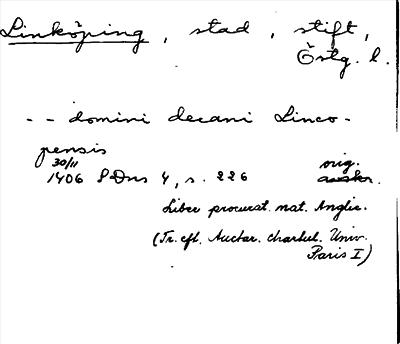 Linköping, stad, stift,
Östg. l.
-- domini decani Linco-
pensis
30/11 orig.
1406 SDns 4, s. 226 avskr.
Liber procurat. nat. Anglic.
(Tr. efl. Auctar. chartul. Univ.
Paris I)